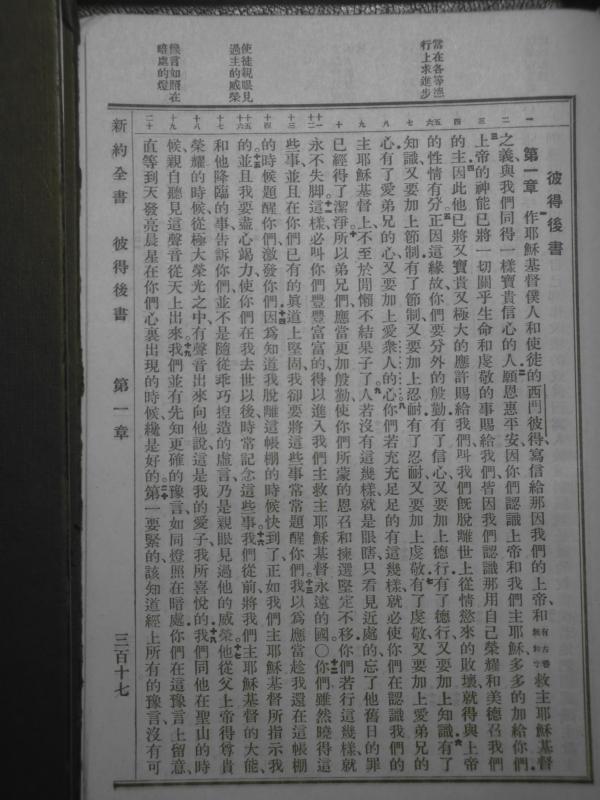 當在各等德
行上求進步
使徒親眼見
過主的威榮
豫言如照在
暗處的燈
彼得後書
第一章 作耶穌基督僕人和使徒的西門彼得寫信給那因我們的上帝和有古卷無和字救主耶穌基督
之義與我們同得一樣寶貴信心的人願恩惠平安因你們認識上帝和我們主耶穌多多的加給你們
上帝的神能已將一切關乎生命和虔敬的事賜給我們皆因我們認識那用自己榮耀和美德召我們
的主因此他已將又寶貴又極大的應許賜給我們叫我們既脫離世上從情慾來的敗壞就得與上帝
的性情有分正因這緣故你們要分外的殷勤有了信心又要加上德行有了德行又要加上知識有了
知識又要加上節制有了節制又要加上忍耐有了忍耐又要加上虔敬有了虔敬又要加上愛弟兄的
心有了愛弟兄的心又要加上愛眾人的心你們若充充足足的有這幾樣就必使你們在認識我們的
主耶穌基督上不至於閒懶不結果子了人若沒有這幾樣就是眼瞎只看見近處的忘了他舊日的罪
已經得了潔淨所以弟兄們應當更加殷勤使你們所蒙的恩召和揀選堅定不移你們若行這幾樣就
永不失脚這樣必叫你們豐豐富富的得以進入我們主救主耶穌基督永遠的國〇你們雖然曉得這
些事並且在你們已有的真道上堅固我卻要將這些事常常題醒你們我以為應當趁我還在這帳棚
的時候題醒你們激發你們因為知道我脫離這帳棚的時候快到了正如我們主耶穌基督所指示我
的並且我要盡心竭力使你們在我去世以後時常記念這些事我們從前將我們主耶穌基督的大能
和他降臨的事告訴你們並不是隨從乖巧揑造的虛言乃是親眼見過他的威榮他從父上帝得尊貴
榮耀的時候從極大榮光之中有聲音出來向他說這是我的愛子我所喜悅的我們同他在聖山的時
候親自聽見這聲音從天上出來我們並有先知更確的豫言如同燈照在暗處你們在這豫言上留意
直等到天發亮晨星在你們心裏出現的時候纔是好的第一要緊的該知道經上所有的豫言沒有可
新約全書 彼得後書 第一章 三百十七